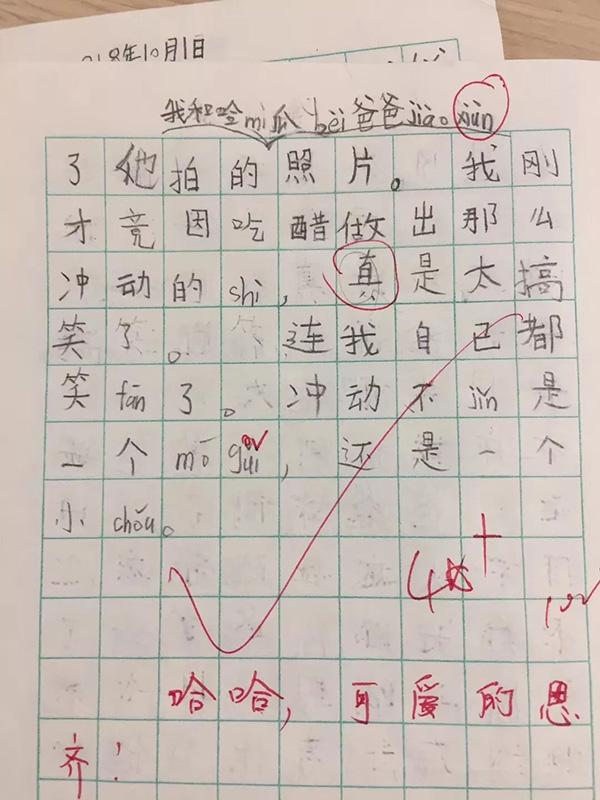 2018年10月1日
我和哈mì瓜bèi爸爸jiào xùn
了他拍的照片。我刚
才竞因吃醋做出那么
冲动的shì,真是太搞
笑了。连我自己都
笑fān了。冲动不jǐn是
一个mō guǐ,还是一个
小chǒu。
4大+
哈哈,可爱的思
齐!